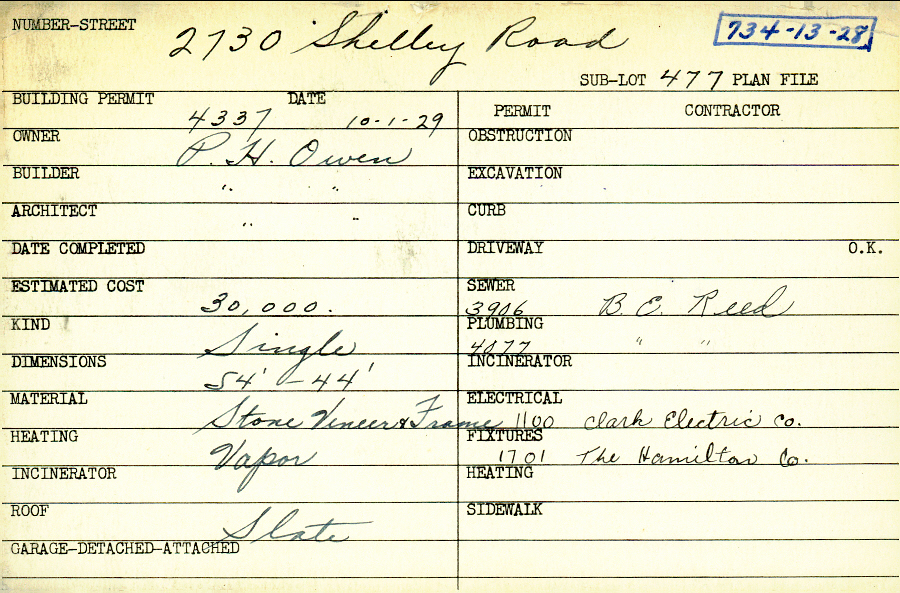 NUMBER-STREET 2730 Shelley Road 734-13-28
SUB-LOT 477 PLAN FILE
BUILDING PERMIT 4337 DATE 10-1-29
PERMIT CONTRACTOR
OWNER P. H. Owen
OBSTRUCTION
BUILDER " "
EXCAVATION
ARCHITECT " "
CURB
DATE COMPLETED
DRIVEWAY O.K.
ESTIMATED COST 30,000.
SEWER 3906 B. E. Reed
KIND Single
PLUMBING 4077 " "
DIMENSIONS 54' - 44'
INCINERATOR
MATERIAL Stone Veneer & Frame
ELECTRICAL 1100 Clark Electric Co.
HEATING Vapor
FIXTURES 1701 The Hamilton Co.
INCINERATOR
HEATING
ROOF Slate
SIDEWALK
GARAGE-DETACHED-ATTACHED